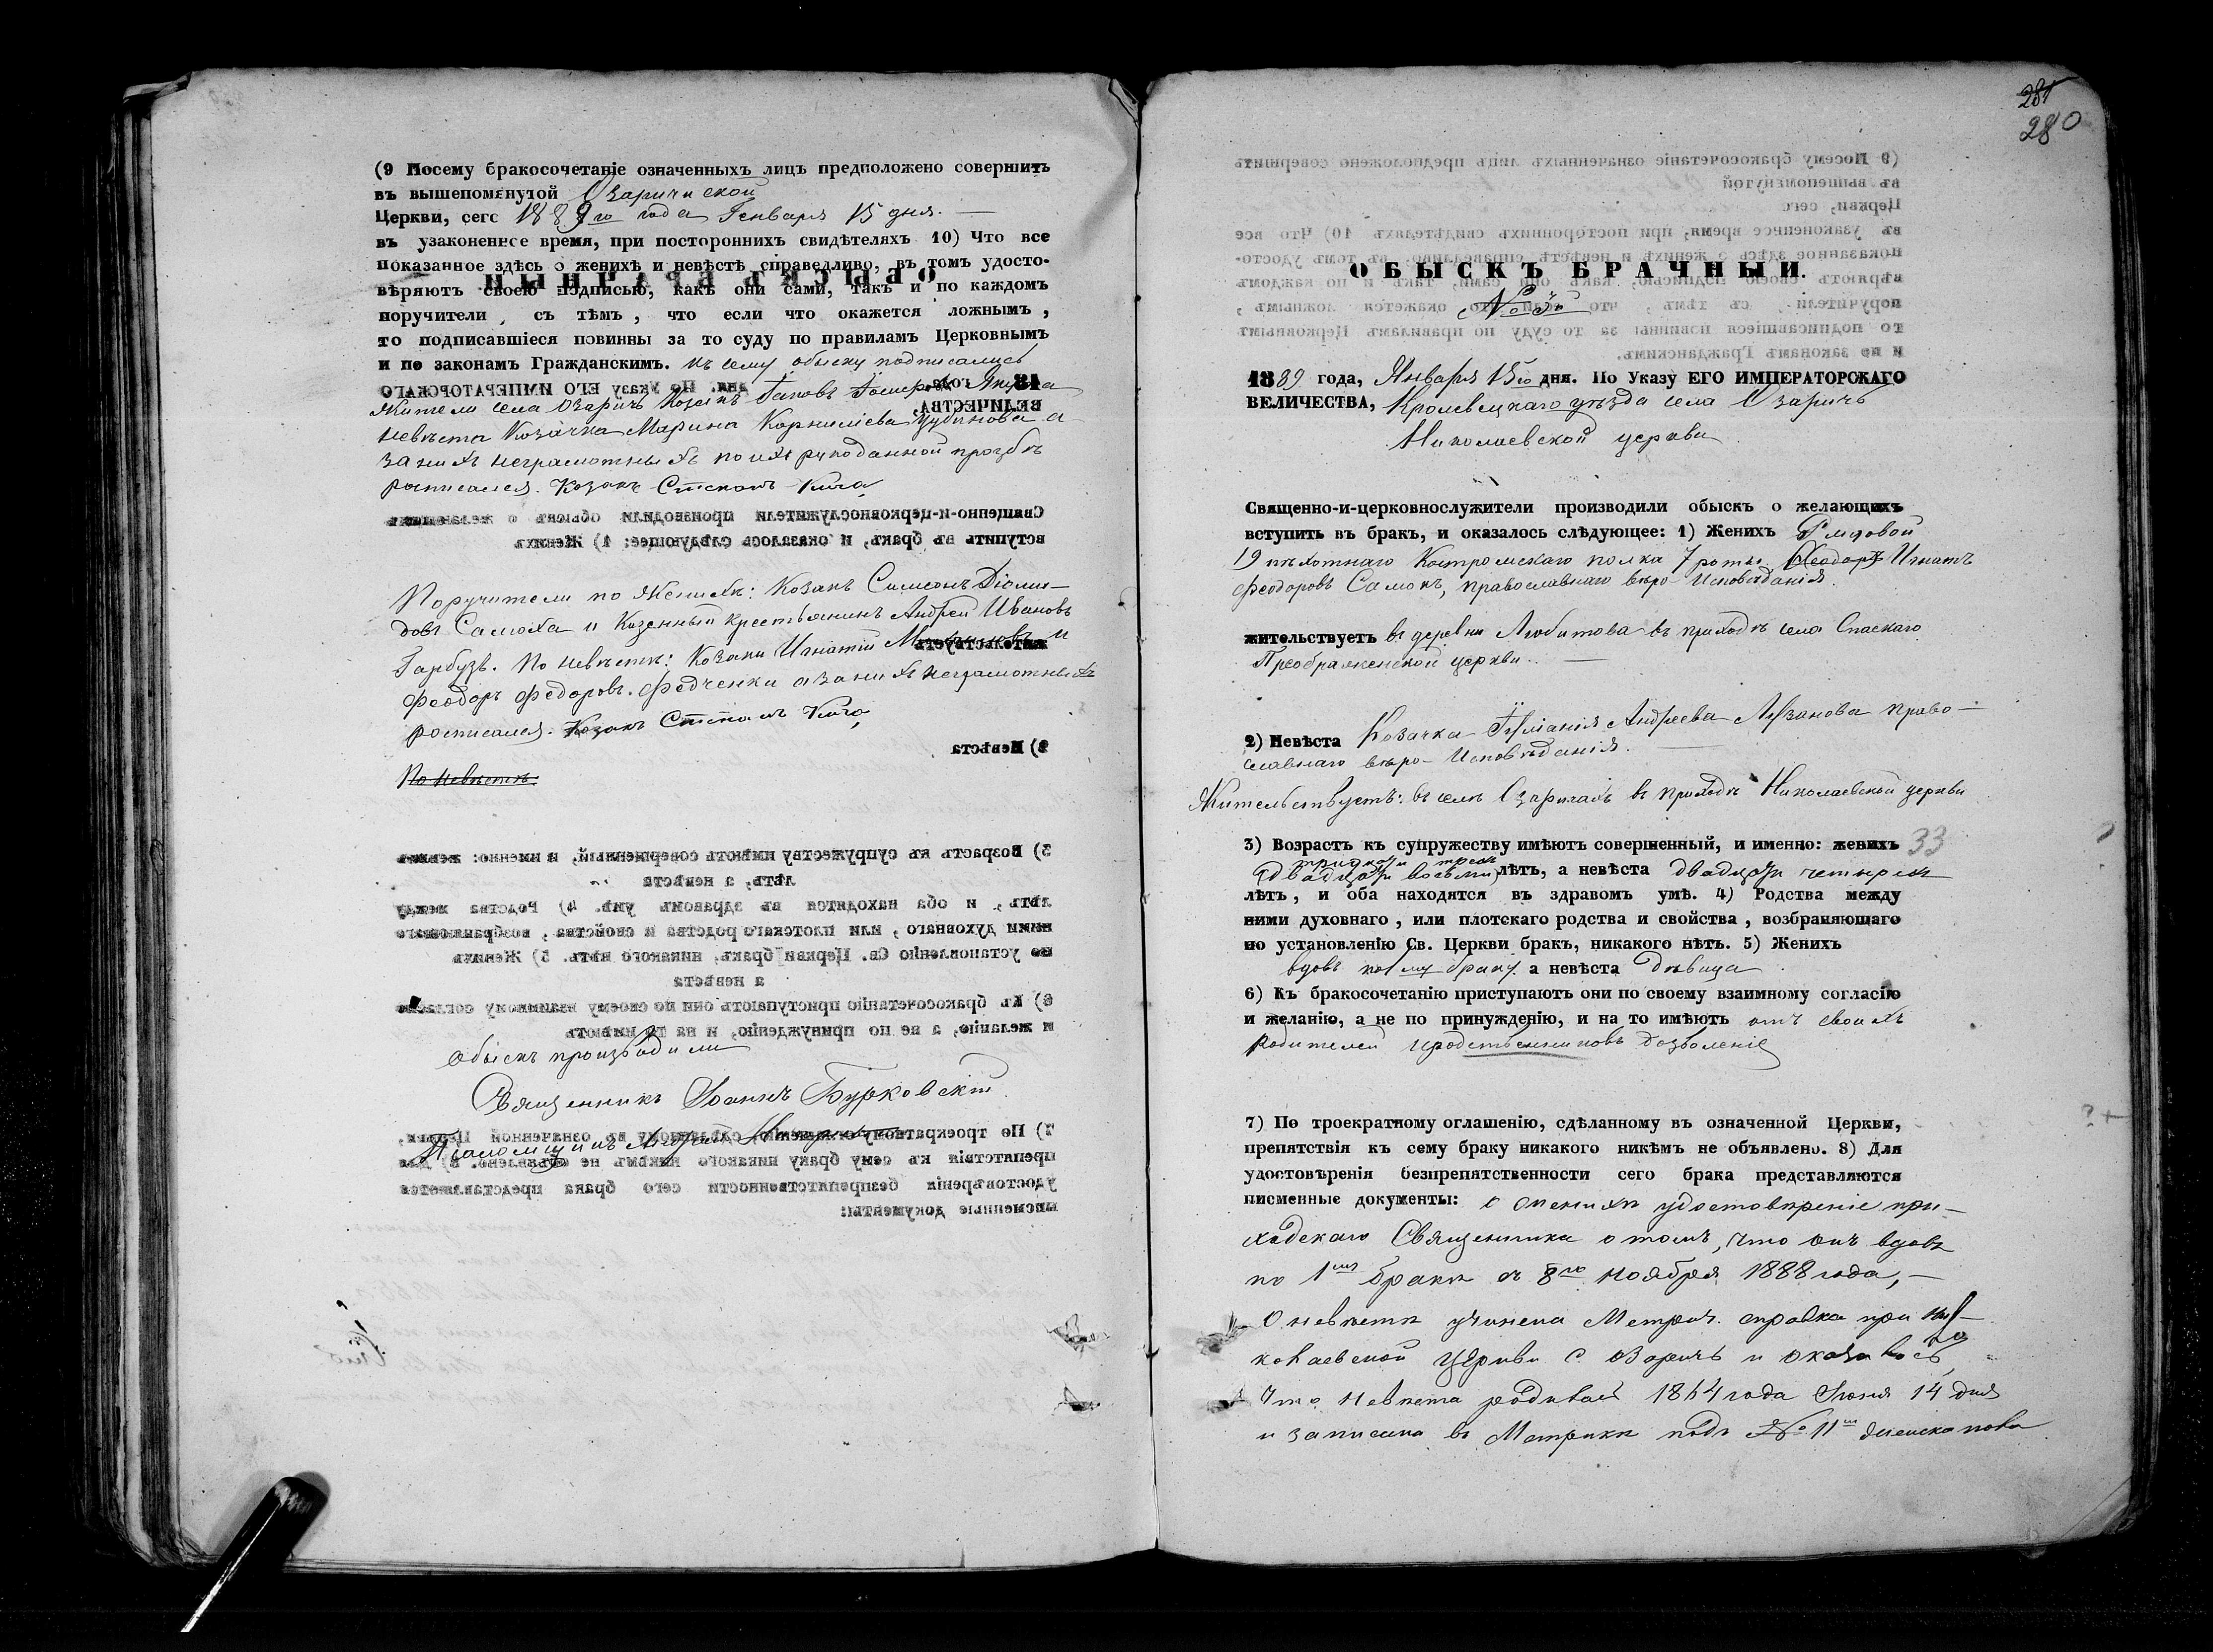 (9 Посему бракосочетаніе означенныхъ лицъ предположено совершить
въ вышепомянутой Озаричиской
Церкви, сего 1889го года Генваря 15 дня. —
въ узаконенное время, при постороннихъ свидѣтеляхъ 10) Что все
показанное здѣсь о женихѣ и невѣстѣ справедливо, въ томъ удосто-
вѣряютъ своею подписью, какъ они сами, такъ и по каждомъ
поручители, съ тѣмъ, что если что окажется ложнымъ,
то подписавшіеся повинны за то суду по правиламъ Церковнымъ
и по законамъ Гражданскимъ. Къ сему обыску подписались
Жители села Озаричъ Козакъ
Невѣста Козачка Марина Корнилiева а
за нихъ неграмотныхъ по ихъ рукоданной прозбѣ
росписался. Козакъ Стефанъ
Поручители по Женихѣ: Козакъ Симеонъ Діоми-
довъ Самоха и Казенный крестьянинъ Андрей Ивановъ
Гарбузъ. По невѣстѣ: Козаки Игнатій и
Феодоръ Федоровъ. Федченки а за нихъ неграмотныхъ
росписался. Козакъ Стефанъ
По невѣстѣ.
Обыскъ производили
Священникъ Іоаннъ Бурковскій
Псаломщикъ Андрей
281
280
ОБЫСКЪ БРАЧНЫЙ.
№ 3й
1889 года, Января 15го дня. По Указу ЕГО ИМПЕРАТОРСКАГО
ВЕЛИЧЕСТВА, Кролевецкаго уѣзда села Озаричъ
Николаевской церкви
Священно-и-церковнослужители производили обыскъ о желающихъ
вступить въ бракъ, и оказалось слѣдующее: 1) Женихъ Рядовой
19 пѣхотнаго Костромскаго полка 7 роты Феодоръ Игнатъ
Феодоровъ Самокъ, православнаго вѣро-Исповѣданія.
жительствуетъ въ деревни Любитова въ приходѣ села Спаскаго
Преображенской церкви. —
2) Невѣста Козачка Андреева Лузанова право-
славнаго вѣро-Исповѣданія.
Жительствуетъ: въ селѣ Озаричахъ въ приходѣ Николаевской церкви
3) Возрастъ къ супружеству имѣютъ совершенный, и именно: женихъ 33
тридцати трехъ
(двадцати восьми) лѣтъ, а невѣста двадцати четырех
лѣтъ, и оба находятся въ здравомъ умѣ. 4) Родства между
ними духовнаго, или плотскаго родства и свойства, возбраняющаго
по установленію Св. Церкви бракъ, никакого нѣтъ. 5) Женихъ
вдовъ по 1му браку а невѣста Дѣвица
6) Къ бракосочетанію приступаютъ они по своему взаимному согласію
и желанію, а не по принужденію, и на то имѣютъ отъ своихъ
родителей и родственниковъ дозволеніе
7) По троекратному оглашенію, сдѣланному въ означенной Церкви,
препятствія къ сему браку никакого никѣмъ не объявлено. 8) Для
удостовѣренія безпрепятственности сего брака представляются
писменные документы: о женихѣ удостовѣреніе при-
ходскаго Священника о томъ, что онъ вдовъ
по 1мъ бракѣ съ 8го Ноября 1888 года, —
О невѣстѣ учинена Метрич. справка при Ни-
колаевской церкви с. Озаричъ и оказалось,
Что невѣста родилась 1864 года Іюня 14 дня
и записана въ Метрикѣ подъ № 11мъ